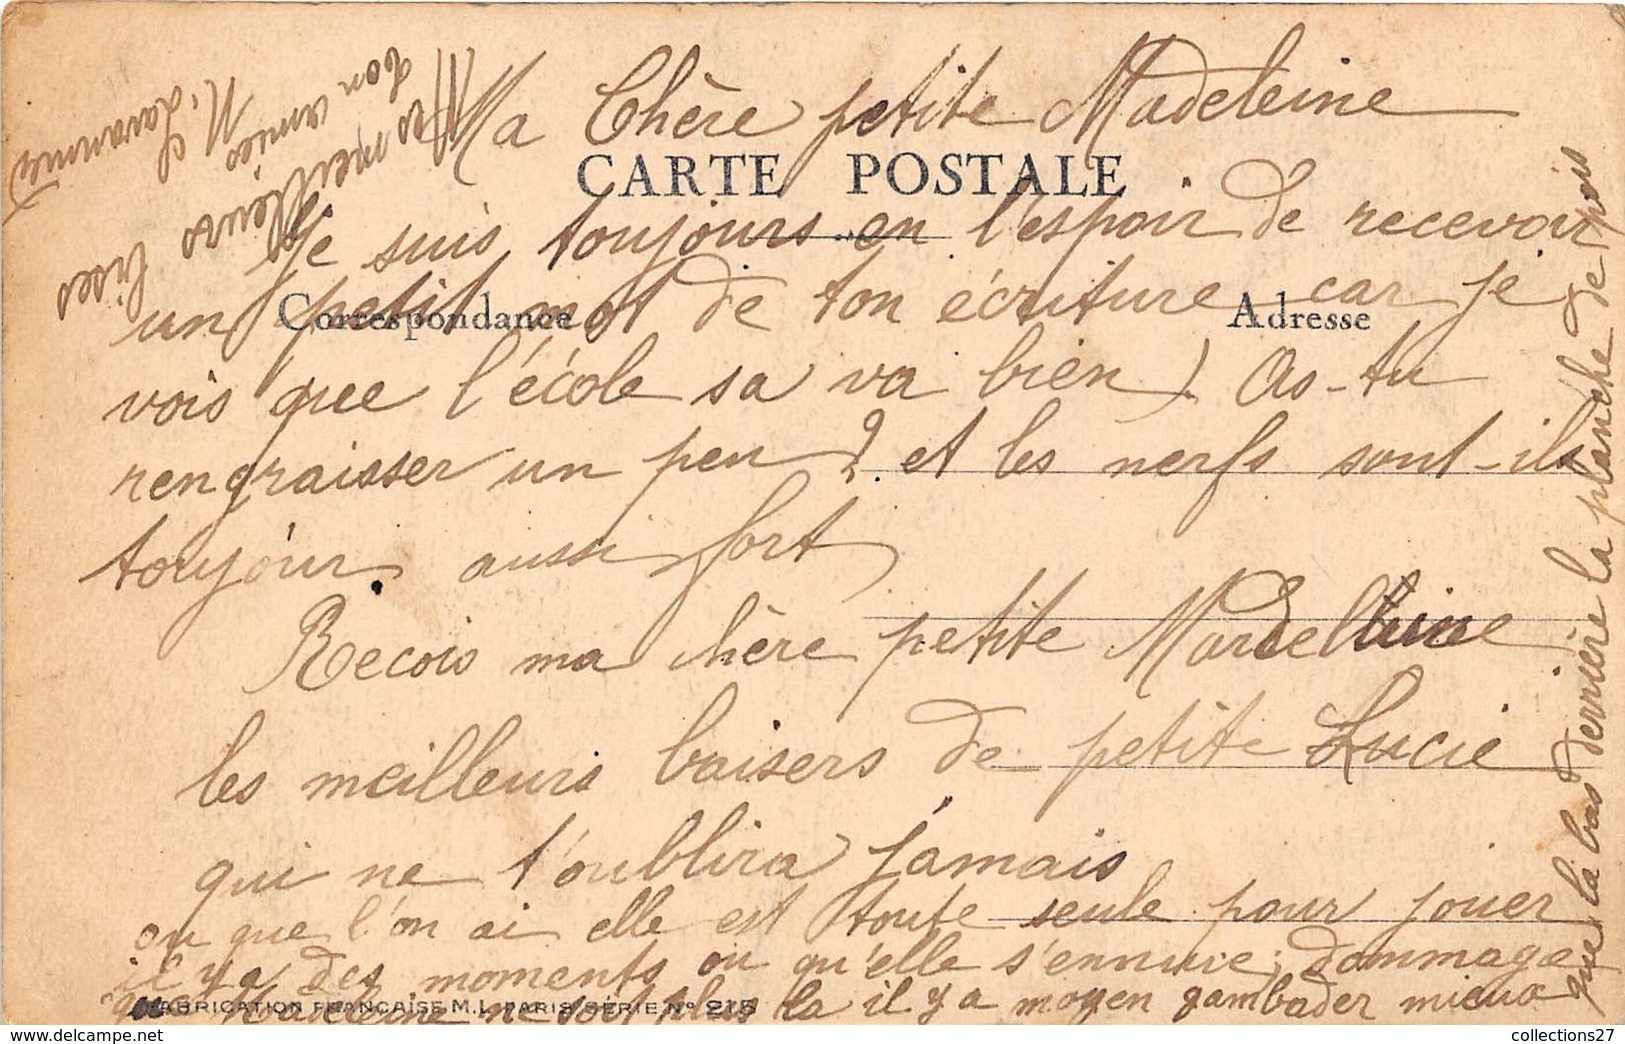 Ma Chère petite Madeleine
CARTE POSTALE
Je suis toujours en l'espoir de recevoir
un petit mot de ton écriture car je
Correspondance
Adresse
vois que l'école sa va bien) As-tu
rengraisser un peu? et les nerfs sont-ils
toujour aussi fort
Recois ma chère petite Mardelleine
les meilleurs baisers de petite Lucie
qui ne t'oublira jamais
ou que l'on ai elle est toute seule pour jouer
il y a des moments ou qu'elle s'ennuie, dommage
que Madeleine ne soit plus la il y a moyen gambader mieux
FABRICATION FRANÇAISE M.L. PARIS SÉRIE No 215
que la bas derrière la planche de pois
Mes meilleurs bises
ton amies